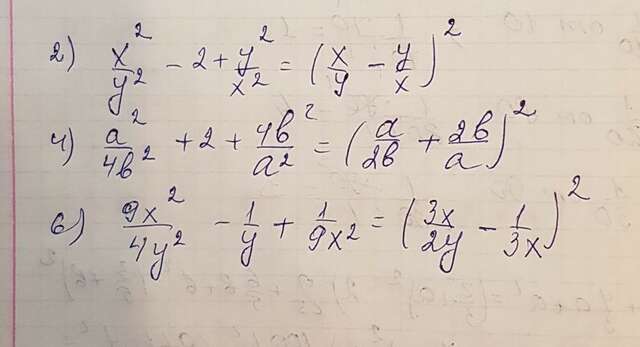 2) x²/y² - 2 + y²/x² = (x/y - y/x)²
4) a²/4b² + 2 + 4b²/a² = (a/2b + 2b/a)²
6) 9x²/4y² - 1/y + 1/9x² = (3x/2y - 1/3x)²